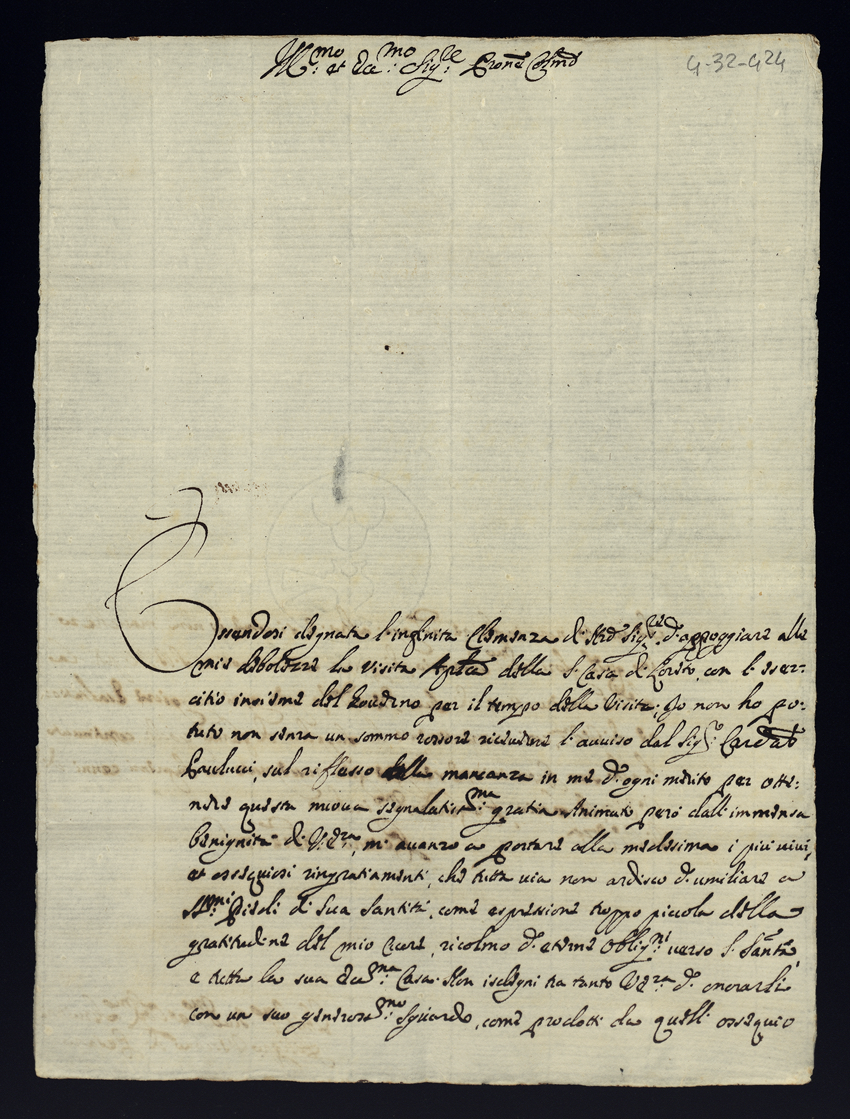 Ill.mo et Ecc.mo Sig.re Prone Colmo
4-32-424
Essendosi degnata l'infinita Clemenza di Nro Sig.re d'appoggiare alle
mie debolezze la visita Aplica della S. Casa di Loreto, con l'eser-
citio insieme del Governo per il tempo della Visita; Io non ho po-
tuto non senza un sommo rossore ricevere l'avviso dal Sig.r Cardle
Paulucci, sul riflesso della mancanza in me d'ogni merito per otte-
nere questa nuova segnalatiss.ma gratia. Animato però dall'immensa
benignità di V.Ecza, m'avanzo a portare alla medesima i più vivi,
et ossequiosi ringratiamenti, che tutta via non ardisco d'umiliare a
SS.mi Piedi di Sua Santità, come espressione troppo piccola della
gratitudine del mio Cuore, ricolmo d'eterne Oblig.ni verso S. Santà,
e tutta la sua Ecc.ma Casa. Non isdegni tra tanto V.Ecza d'onorarli
con un suo generosiss.mo Sguardo, come prodotti da quell'ossequio